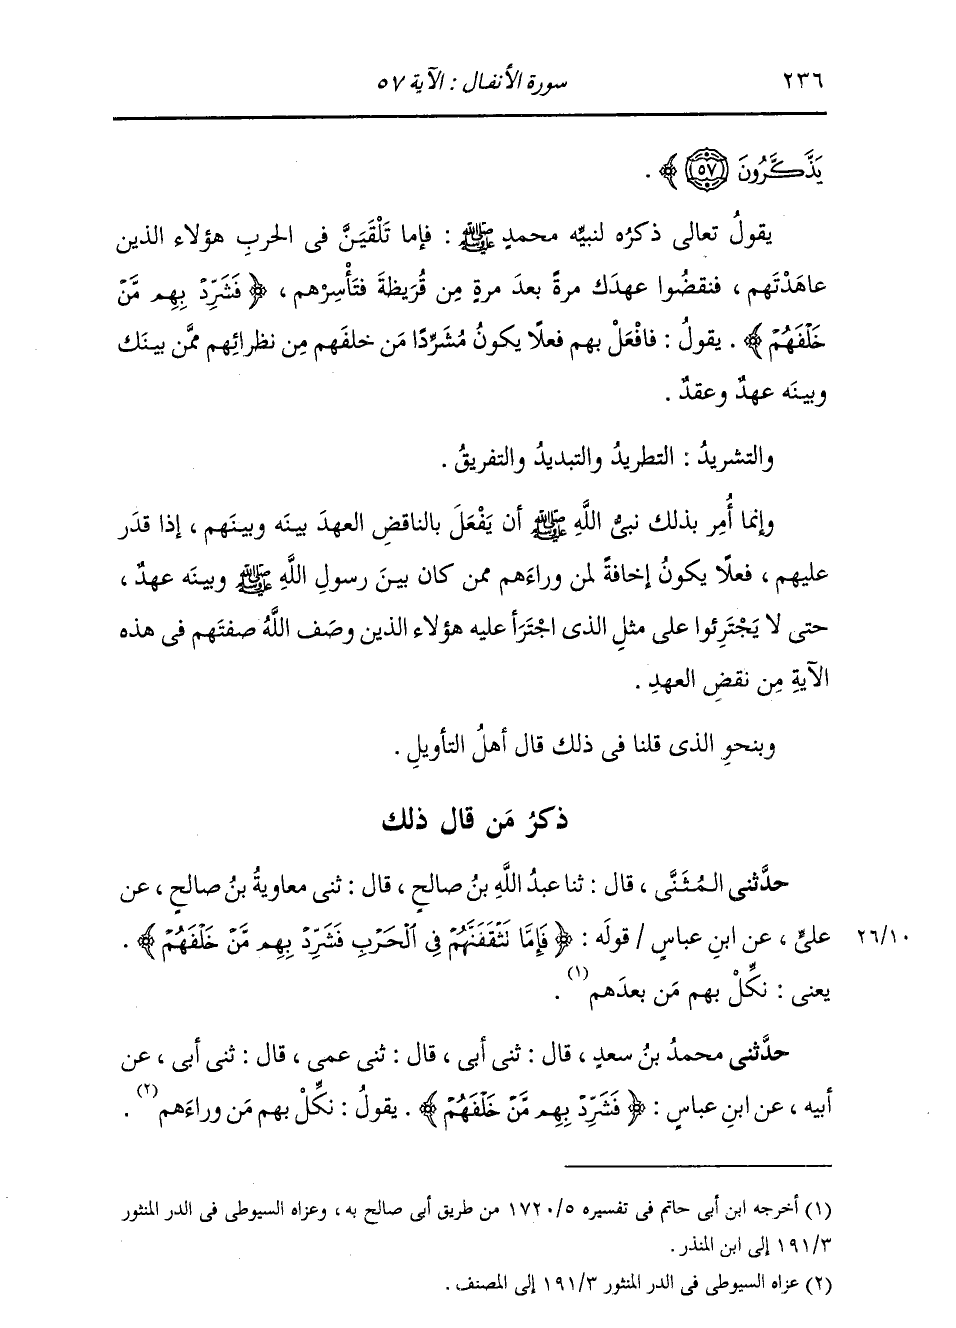 ٢٣٦ سورة الأنفال : الآية ٥٧
يَذَّكَّرُونَ ٥٧ ﴾ .
يقولُ تعالى ذكرُه لنبيِّه محمدٍ ﷺ : فإما تَلْقَيَنَّ فى الحربِ هؤلاء الذين
عاهَدْتَهم ، فنقضُوا عهدَك مرةً بعدَ مرةٍ مِن قُرَيظةَ فتَأْسِرْهم ، ﴿ فَشَرِّدْ بِهِم مَّنْ
خَلْفَهُمْ ﴾ . يقولُ : فافْعَلْ بهم فعلًا يكونُ مُشَرِّدًا مَن خلفَهم مِن نظرائِهم ممَّن بينَك
وبينَه عهدٌ وعقدٌ .
والتشريدُ : التطريدُ والتبديدُ والتفريقُ .
وإنما أُمِر بذلك نبىُّ اللَّهِ ﷺ أن يَفْعَلَ بالناقضِ العهدَ بينَه وبينَهم ، إذا قدَر
عليهم ، فعلًا يكونُ إخافةً لمن وراءَهم ممن كان بينَ رسولِ اللَّهِ ﷺ وبينَه عهدٌ ،
حتى لا يَجْتَرِئوا على مثلِ الذى اجْتَرَأ عليه هؤلاء الذين وصَف اللَّهُ صفتَهم فى هذه
الآيةِ مِن نقضِ العهدِ .
وبنحوِ الذى قلنا فى ذلك قال أهلُ التأويلِ .
ذكرُ مَن قال ذلك
حدَّثنى المُثَنَّى ، قال : ثنا عبدُ اللَّهِ بنُ صالحٍ ، قال : ثنى معاويةُ بنُ صالحٍ ، عن
٢٦/١٠ علىٍّ ، عن ابنِ عباسٍ / قولَه : ﴿ فَإِمَّا تَثْقَفَنَّهُمْ فِي الْحَرْبِ فَشَرِّدْ بِهِم مَّنْ خَلْفَهُمْ ﴾ .
يعنى : نكِّلْ بهم مَن بعدَهم (١) .
حدَّثنى محمدُ بنُ سعدٍ ، قال : ثنى أبى ، قال : ثنى عمى ، قال : ثنى أبى ، عن
أبيه ، عن ابنِ عباسٍ : ﴿ فَشَرِّدْ بِهِم مَّنْ خَلْفَهُمْ ﴾ . يقولُ : نكِّلْ بهم مَن وراءَهم (٢) .
(١) أخرجه ابن أبى حاتم فى تفسيره ١٧٢٠/٥ من طريق أبى صالح به ، وعزاه السيوطى فى الدر المنثور
١٩١/٣ إلى ابن المنذر .
(٢) عزاه السيوطى فى الدر المنثور ١٩١/٣ إلى المصنف .